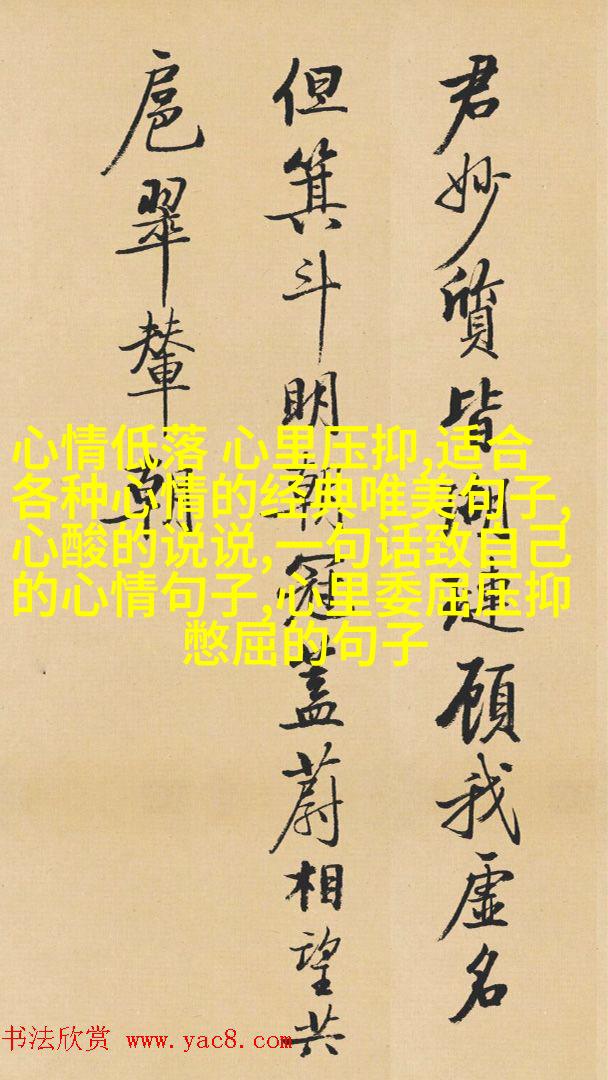 君妙質皆瑚璉顧我虛名
但箕斗明朝冠蓋蔚相望共
扈翠輦朝
心情低落 心里压抑,适合
各种心情的经典唯美句子,
心酸的说说,一句话致自己
的心情句子,心里委屈压抑
憋屈的句子
书法欣赏 www.yac8.com